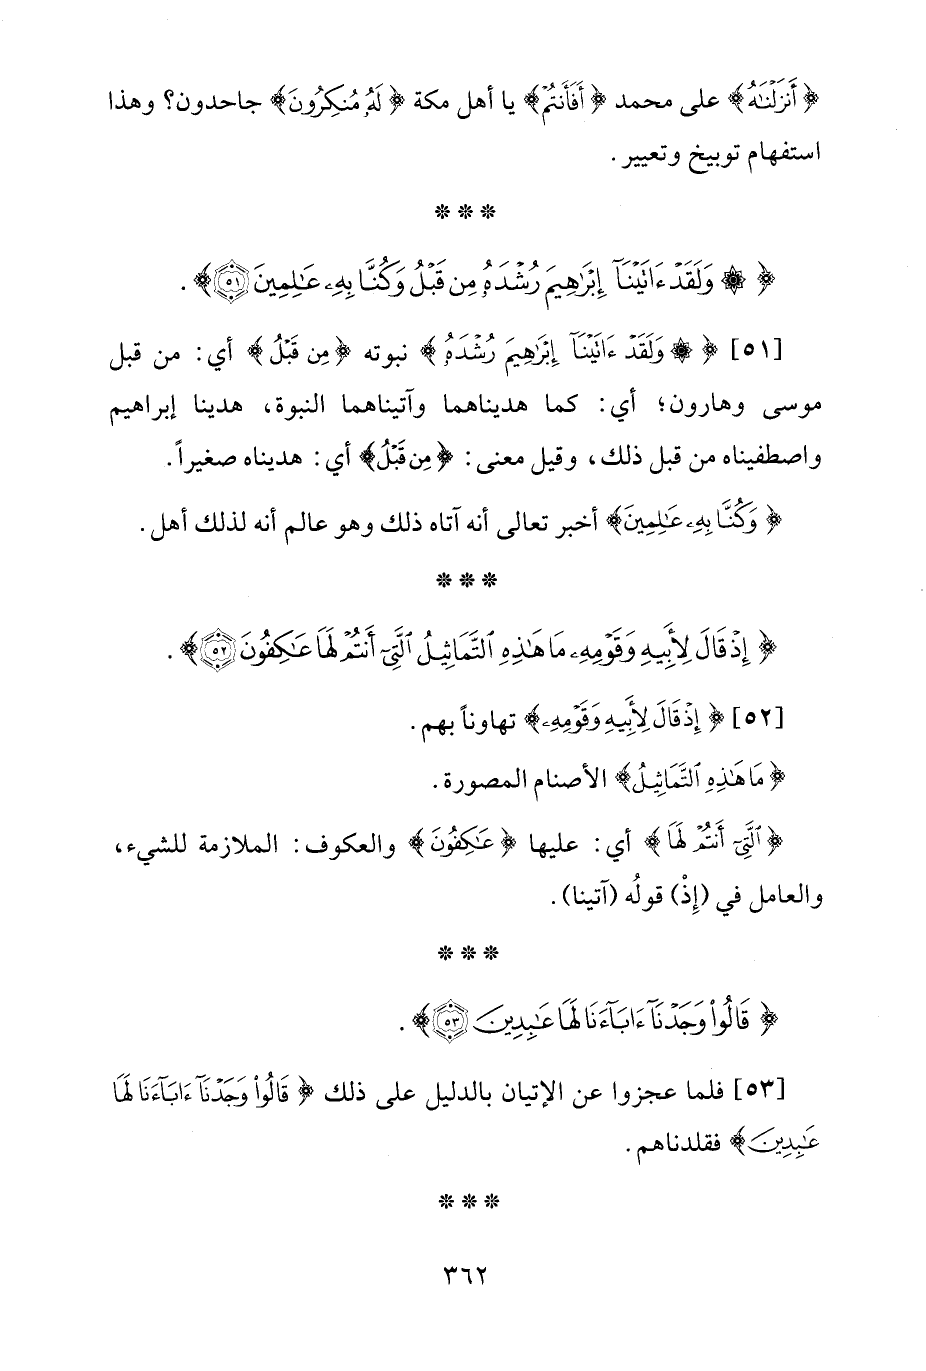 ﴿ أَنزَلْنَٰهُ﴾ على محمد ﴿ أَفَأَنتُمْ﴾ يا أهل مكة ﴿ لَهُۥ مُنكِرُونَ﴾ جاحدون؟ وهذا
استفهام توبيخ وتعيير.
* * *
﴿ ۞ وَلَقَدْ ءَاتَيْنَآ إِبْرَٰهِيمَ رُشْدَهُۥ مِن قَبْلُ وَكُنَّا بِهِۦ عَٰلِمِينَ ٥١﴾.
[٥١] ﴿ ۞ وَلَقَدْ ءَاتَيْنَآ إِبْرَٰهِيمَ رُشْدَهُۥ﴾ نبوته ﴿مِن قَبْلُ﴾ أي: من قبل
موسى وهارون؛ أي: كما هديناهما وآتيناهما النبوة، هدينا إبراهيم
واصطفيناه من قبل ذلك، وقيل معنى: ﴿مِن قَبْلُ﴾ أي: هديناه صغيراً.
﴿ وَكُنَّا بِهِۦ عَٰلِمِينَ﴾ أخبر تعالى أنه آتاه ذلك وهو عالم أنه لذلك أهل.
* * *
﴿ إِذْ قَالَ لِأَبِيهِ وَقَوْمِهِۦ مَا هَٰذِهِ ٱلتَّمَاثِيلُ ٱلَّتِىٓ أَنتُمْ لَهَا عَٰكِفُونَ ٥٢﴾.
[٥٢] ﴿ إِذْ قَالَ لِأَبِيهِ وَقَوْمِهِۦ﴾ تهاوناً بهم.
﴿ مَا هَٰذِهِ ٱلتَّمَاثِيلُ﴾ الأصنام المصورة.
﴿ ٱلَّتِىٓ أَنتُمْ لَهَا﴾ أي: عليها ﴿ عَٰكِفُونَ﴾ والعكوف: الملازمة للشيء،
والعامل في (إِذْ) قولُه (آتينا).
* * *
﴿ قَالُوا۟ وَجَدْنَآ ءَابَآءَنَا لَهَا عَٰبِدِينَ ٥٣﴾.
[٥٣] فلما عجزوا عن الإتيان بالدليل على ذلك ﴿ قَالُوا۟ وَجَدْنَآ ءَابَآءَنَا لَهَا
عَٰبِدِينَ﴾ فقلدناهم.
* * *
٣٦٢